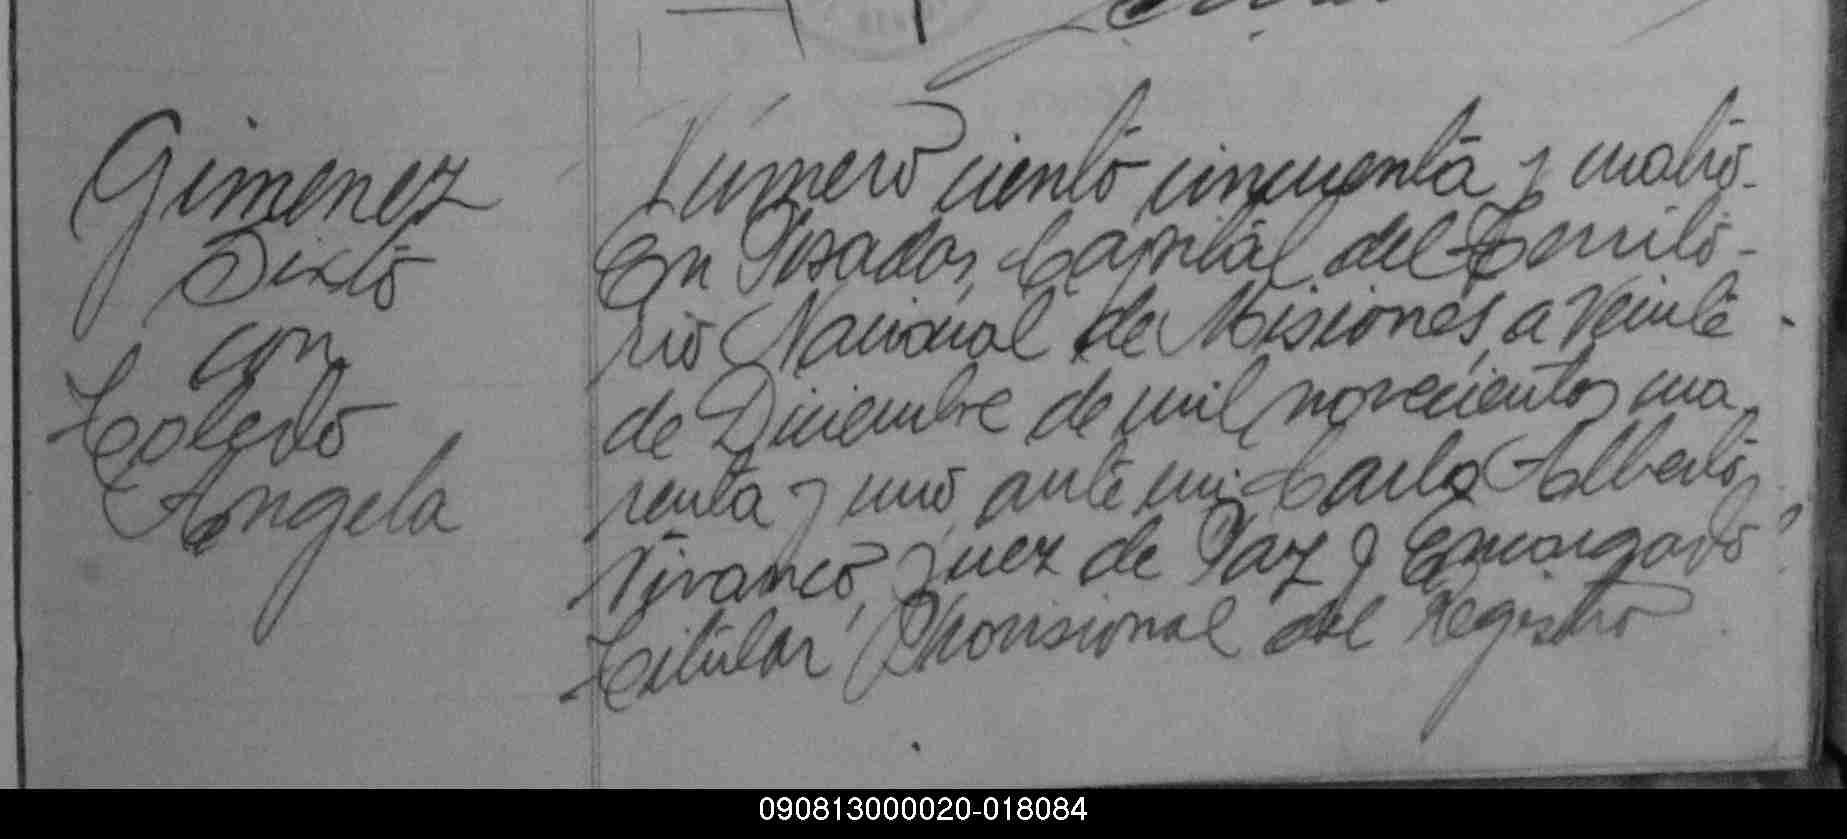 Gimenez
Sixto
con
Toledo
Angela
Número ciento cincuenta y cuatro.
En Posadas, Capital del Territo-
rio Nacional de Misiones, a veinte
de Diciembre de mil novecientos cua
renta y uno, ante mi Carlos Alberto
Vivanco, Juez de Paz y Encargado
Titular Provisional del Registro
090813000020-018084